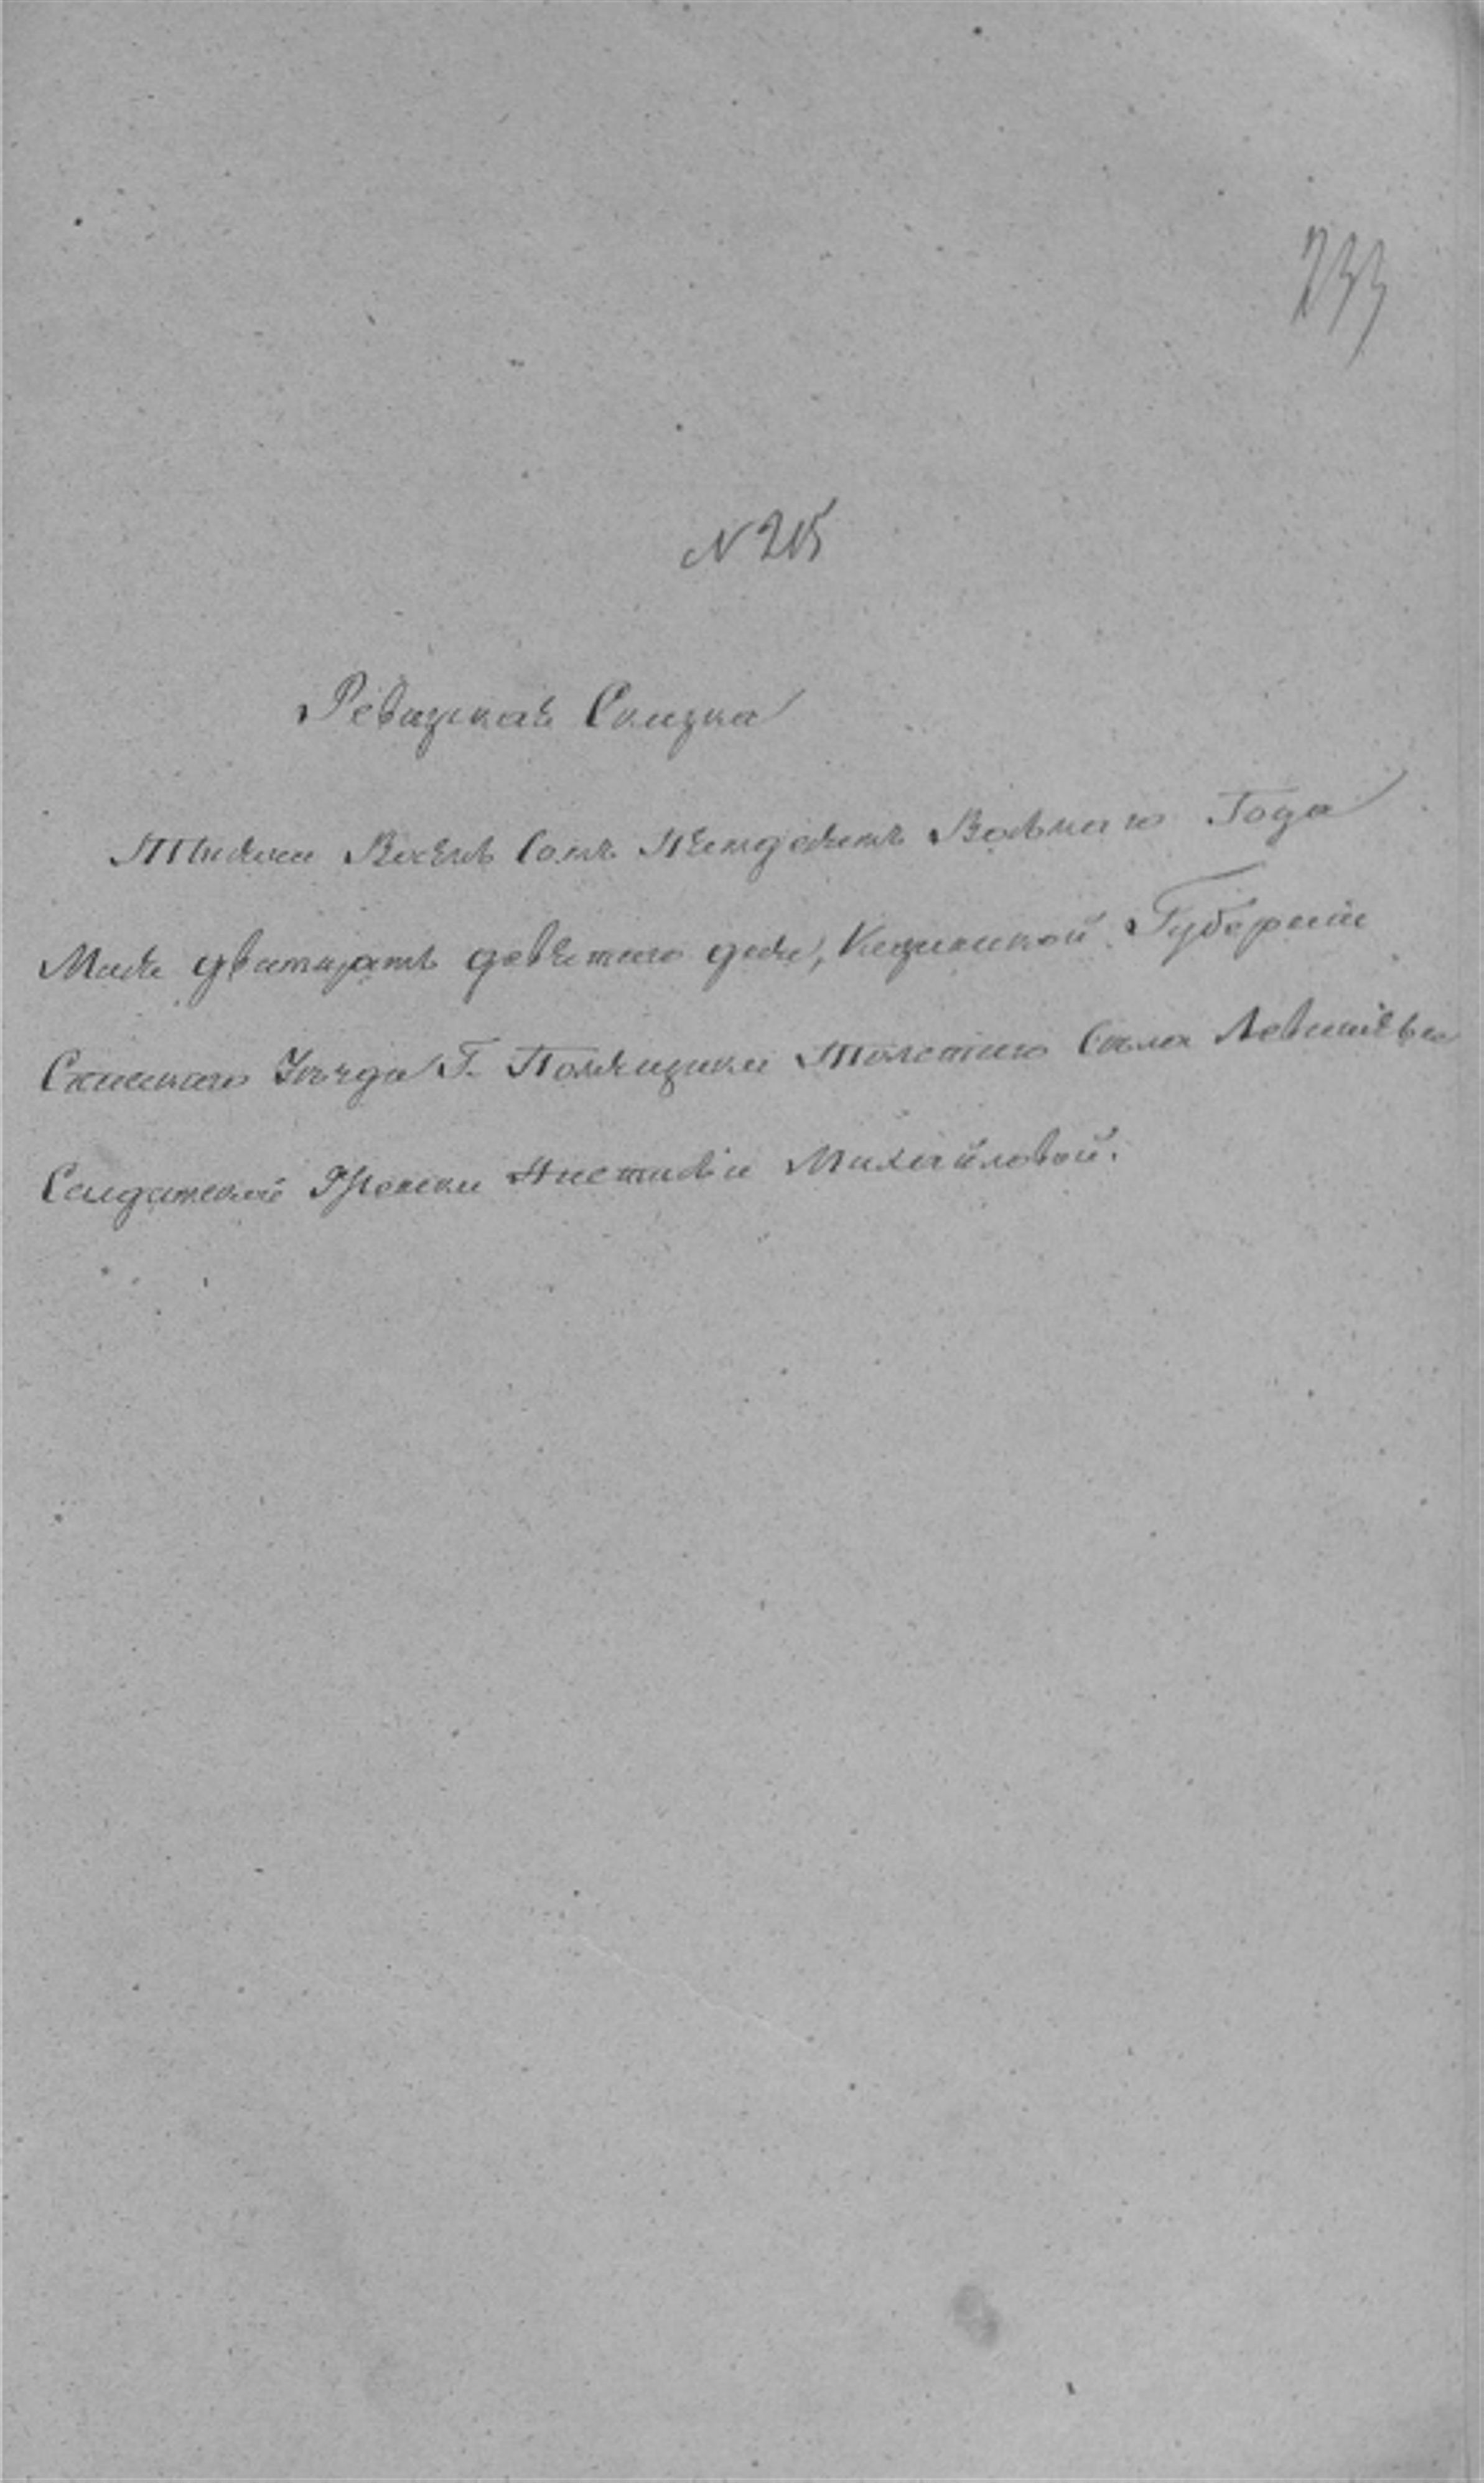 233
N 215
Ревизская Сказка
Тысеча Восемь Сотъ Пятдесятъ Восьмаго Года
Маія дватцать девятаго дня, Казанской Губерніи
Спаскаго Уезда Г. Помещика Толстаго Села Левашева
Салдатской Жонки Настасьи Михайловой.